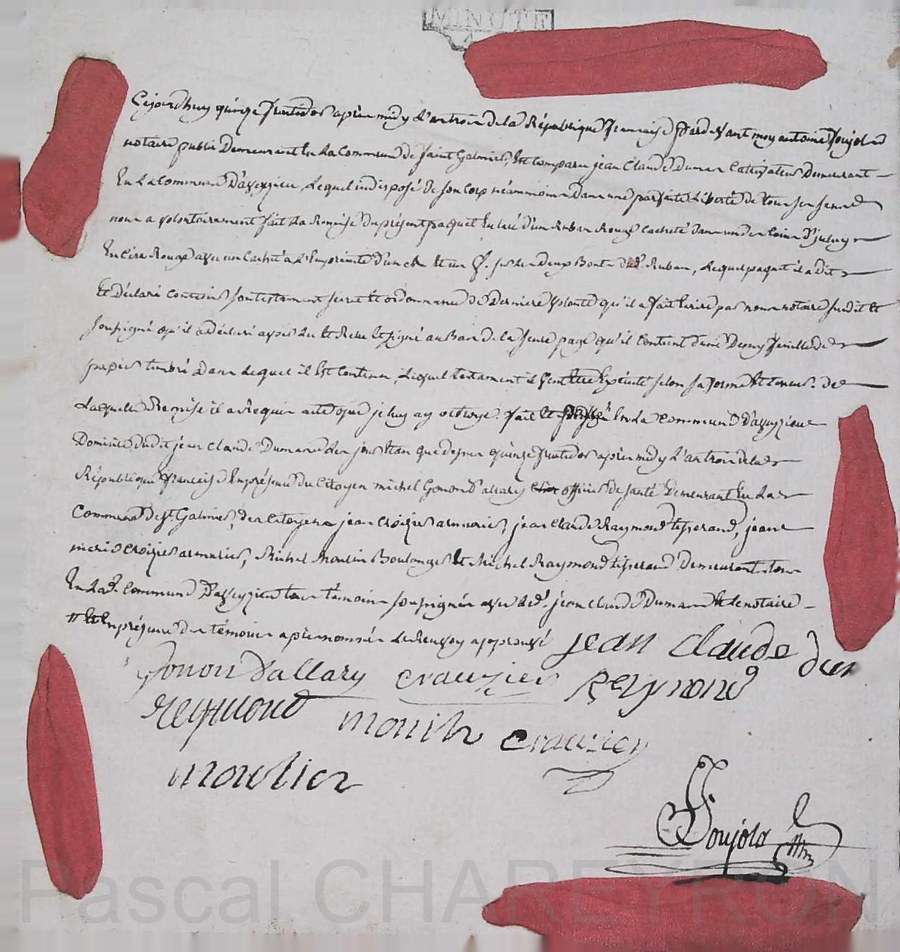 MINUTE
Cejourdhuy quinze fructidor après midy l'an trois de la République francaise pardevant moy antoine Poujol
notaire public Demeurant En La Commune de Saint Galmier, Est comparu jean Claude Dumas Cultivateur Demeurant
En La Commune D'aveyzieu, Lequel indisposé de son Corp néanmoins Dans une parfaite Liberté de tous ses sens
nous a volontairement fait La Remise du présent paquet d'un Ruban Rouge cacheté Dans un des Coins
En Cire Rouge avec un Cachet à L'Empreinte d'un et un P. sur les Deux Bouts du Ruban, Lequel paquet il a Dit
Et Déclaré Contenir son testament secret Et ordonnance De Dernière volonté qu'il a fait Ecrire par nous notaire susdit Et
soussigné qu'il a Déclaré après Lu Et Relu Et signé au Bas de la seule page qu'il Contient Dans Demy feuille de
papier timbré Dans Lequel il Est Contenu, Lequel testament il Etre Exécuté selon sa forme Et teneur. de
Laquelle Remise il a Requis acte que je luy ay octroyé. fait Et En La Commune D'aveyzieu
Domicile Dudit jean Claude Dumas Les jour Et an que dessus quinze fructidor après midy L'an trois de la
République francaise En présence du Citoyen michel Gonon D'allary officier de santé Demeurant En La
Commune de St. Galmier, des Citoyens jean Croizier armurier, jean Claude Raymond tisserand, jean
Croizier armurier, Michel Moulin Boulanger Et Michel Raymond tisserand Demeurants tous
En Lad. Commune D'aveyzieu tous témoins soussignés avec Led. jean Claude Dumas Et le notaire
# Et En présence des témoins après nommés Le Renvoy approuvé jean Claude dumas
Gonon D'allary crauzier Reymond
reymond moulin crauzier
moulin
Poujol
Pascal CHAREYRON